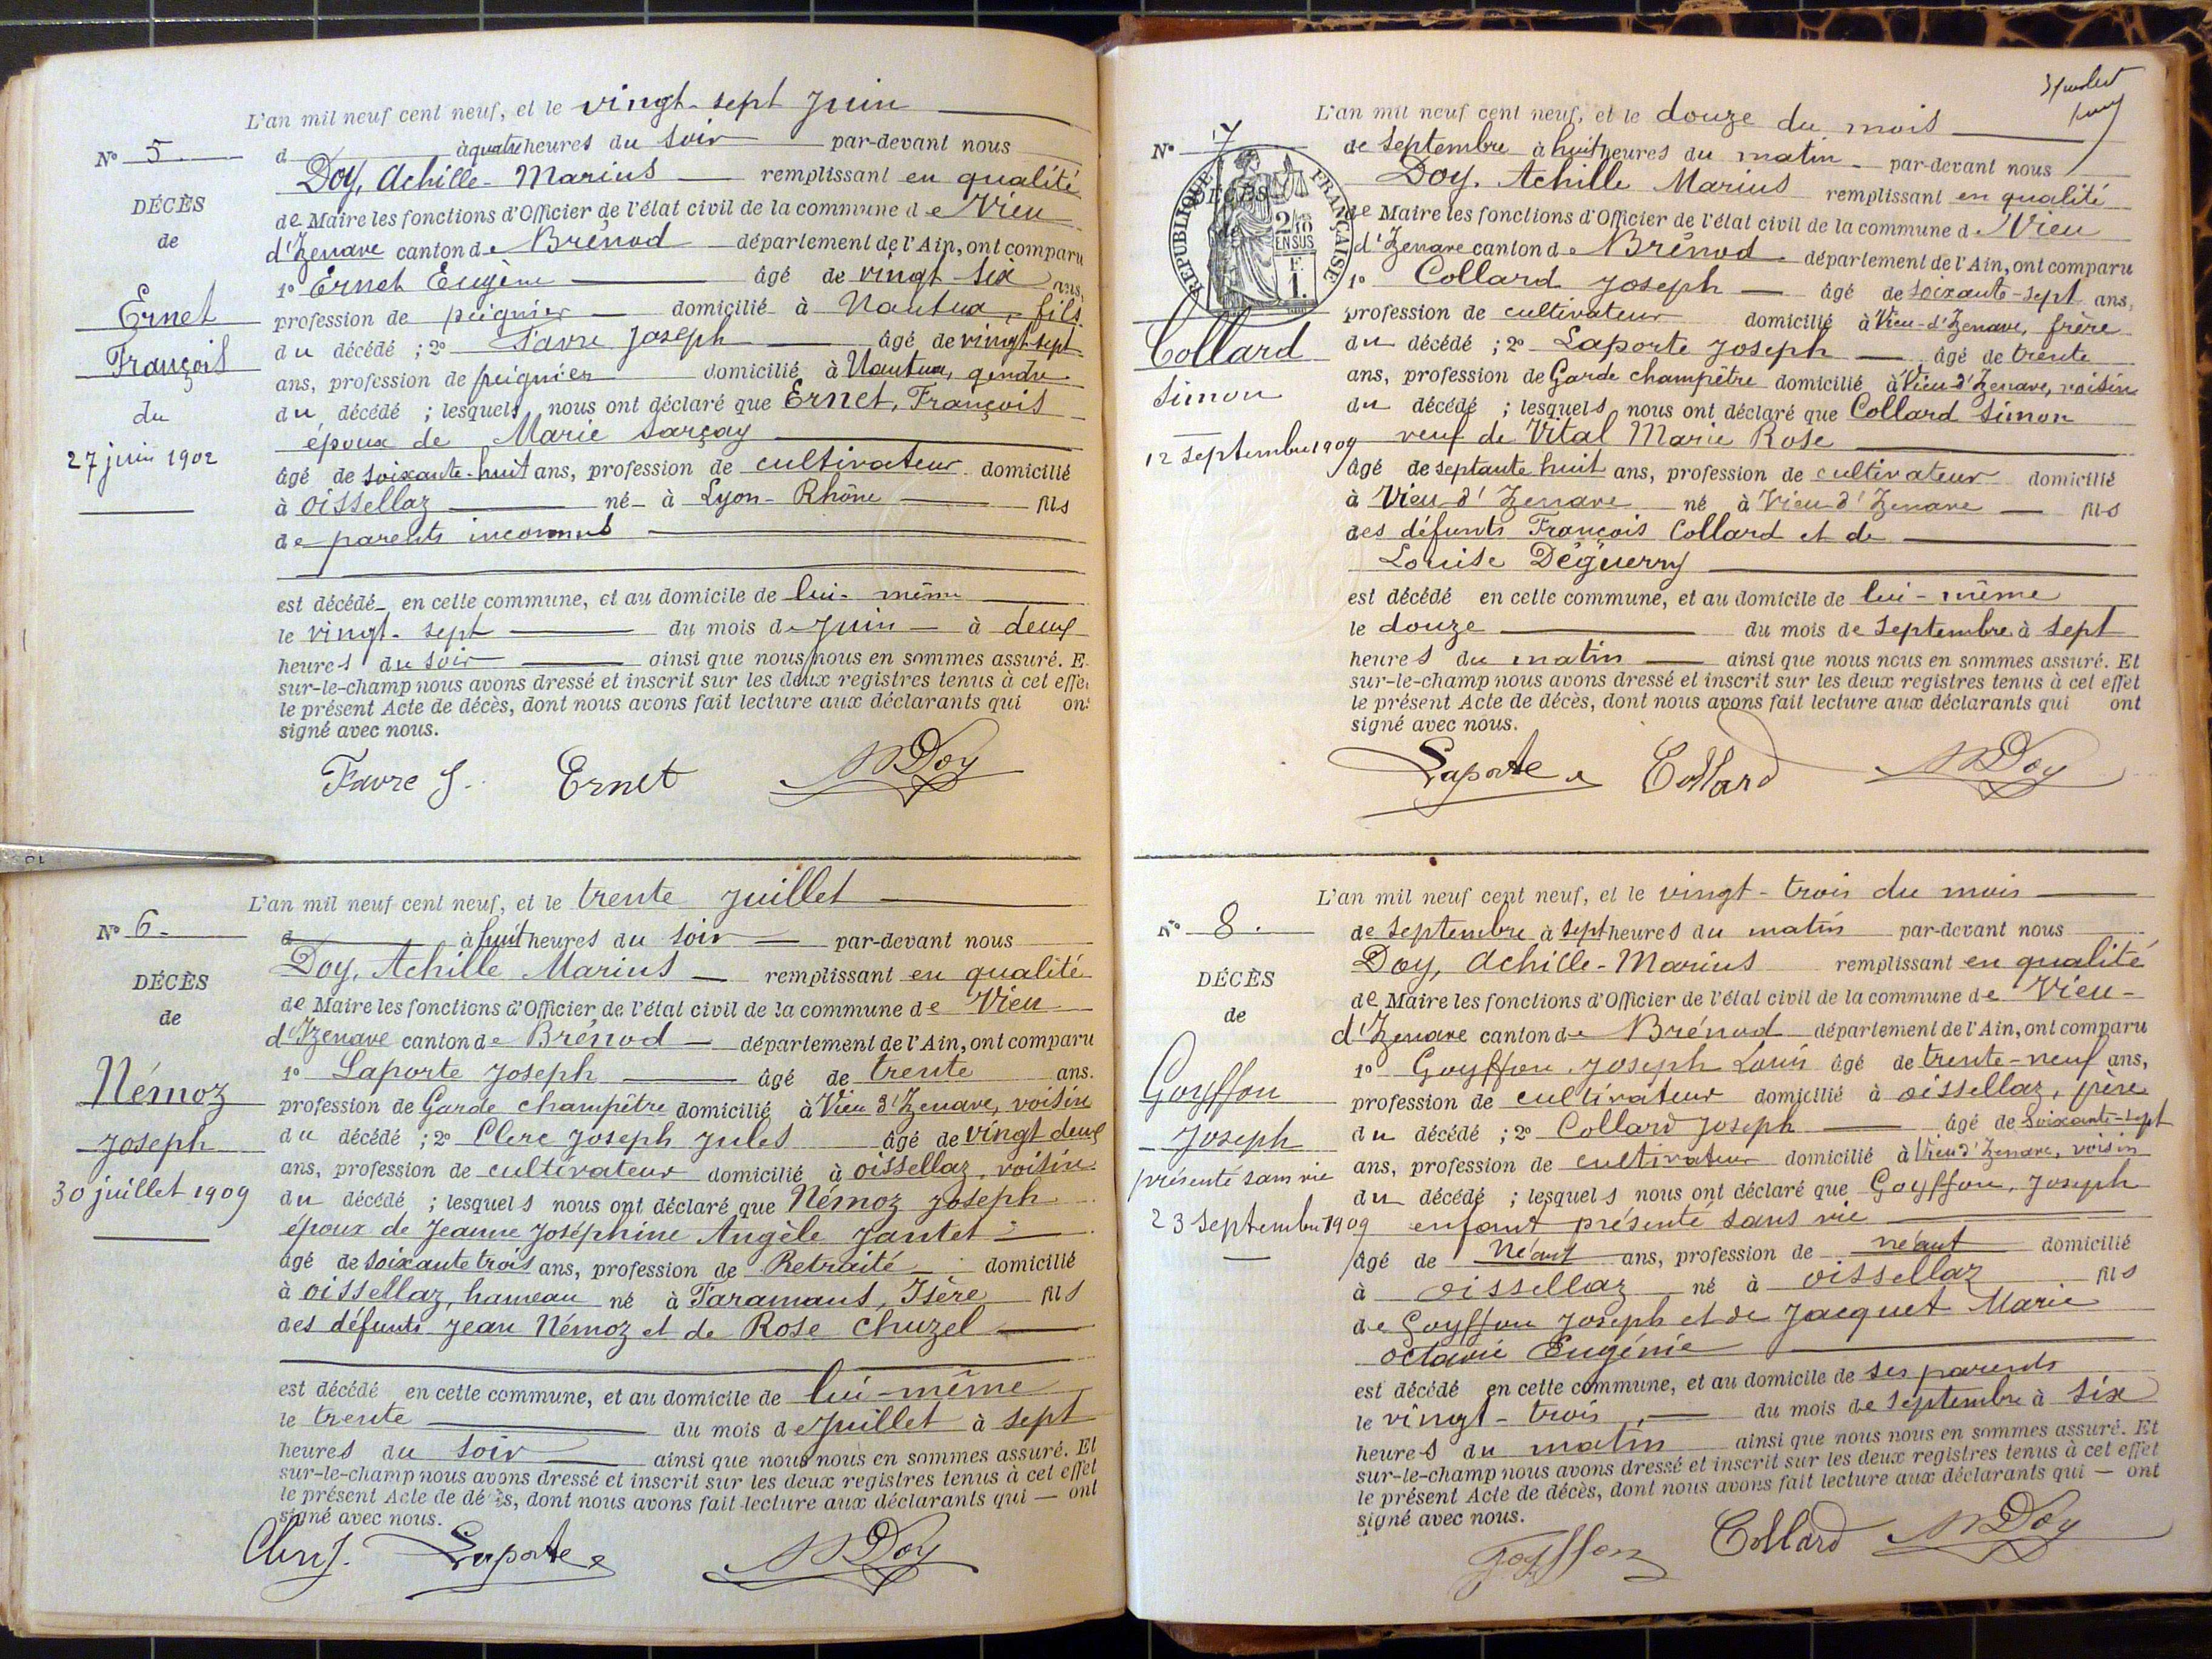 L'an mil neuf cent neuf, et le vingt-sept Juin
N° 5
d à quatre heures du soir par-devant nous
Doy, Achille-Marius remplissant en qualité
DÉCÈS
de Maire les fonctions d'Officier de l'état civil de la commune de Vieu
de
d'Izenave canton de Brénod département de l'Ain, ont comparu
1° Ernet Eugène âgé de vingt-six ans,
Ernet
profession de peignier domicilié à Nantua, fils
François
du décédé ; 2° Favre Joseph âgé de vingt-sept
ans, profession de peignier domicilié à Nantua, gendre
du
du décédé ; lesquels nous ont déclaré que Ernet, François
époux de Marie Sarçay
27 juin 1902
âgé de soixante-huit ans, profession de cultivateur domicilié
à Oissellaz né à Lyon-Rhône fils
de parents inconnus
est décédé en cette commune, et au domicile de lui-même
le vingt-sept du mois de Juin à deux
heures du soir ainsi que nous nous en sommes assuré. E
sur-le-champ nous avons dressé et inscrit sur les deux registres tenus à cet effe
le présent Acte de décès, dont nous avons fait lecture aux déclarants qui on
signé avec nous.
Favre J. Ernet Doy
10
L'an mil neuf cent neuf, et le trente Juillet
N° 6
d à huit heures du soir par-devant nous
Doy, Achille Marius remplissant en qualité
DÉCÈS
de Maire les fonctions d'Officier de l'état civil de la commune de Vieu
de
d'Izenave canton de Brénod département de l'Ain, ont comparu
1° Laporte Joseph âgé de trente ans.
Némoz
profession de Garde champêtre domicilié à Vieu d'Izenave, voisin
Joseph
du décédé ; 2° Clerc Joseph Jules âgé de vingt deux
ans, profession de cultivateur domicilié à oissellaz, voisin
30 juillet 1909
du décédé ; lesquels nous ont déclaré que Némoz Joseph
époux de Jeanne Joséphine Angèle Jantet
âgé de soixante trois ans, profession de Retraité domicilié
à oissellaz, hameau né à Faramans, Isère fils
des défunts Jean Némoz et de Rose Chuzel
est décédé en cette commune, et au domicile de lui-même
le trente du mois de Juillet à sept
heures du soir ainsi que nous nous en sommes assuré. Et
sur-le-champ nous avons dressé et inscrit sur les deux registres tenus à cet effet
le présent Acte de décès, dont nous avons fait lecture aux déclarants qui — ont
signé avec nous.
Clerc J. Laporte Doy
L'an mil neuf cent neuf, et le douze du mois
N° 7
de Septembre à huit heures du matin par-devant nous
Doy, Achille Marius remplissant en qualité
DÉCÈS
RÉPUBLIQUE FRANÇAISE
2/10 EN SUS
F. 1.
de Maire les fonctions d'Officier de l'état civil de la commune de Vieu
d'Izenave canton de Brénod département de l'Ain, ont comparu
1° Collard Joseph âgé de soixante-sept ans,
profession de cultivateur domicilié à Vieu-d'Izenave, frère
Collard
du décédé ; 2° Laporte Joseph âgé de trente
Simon
ans, profession de Garde champêtre domicilié à Vieu d'Izenave, voisin
du décédé ; lesquels nous ont déclaré que Collard Simon
12 septembre 1909
veuf de Vital Marie Rose
âgé de septante huit ans, profession de cultivateur domicilié
à Vieu d'Izenave né à Vieu d'Izenave fils
des défunts François Collard et de
Louise Déguerry
est décédé en cette commune, et au domicile de lui-même
le douze du mois de Septembre à sept
heures du matin ainsi que nous nous en sommes assuré. Et
sur-le-champ nous avons dressé et inscrit sur les deux registres tenus à cet effet
le présent Acte de décès, dont nous avons fait lecture aux déclarants qui ont
signé avec nous.
Laporte Collard Doy
L'an mil neuf cent neuf, et le vingt-trois du mois
N° 8.
de Septembre à sept heures du matin par-devant nous
Doy, Achille-Marius remplissant en qualité
DÉCÈS
de Maire les fonctions d'Officier de l'état civil de la commune de Vieu-
de
d'Izenave canton de Brénod département de l'Ain, ont comparu
1° Goyffon Joseph Louis âgé de trente-neuf ans,
Goyffon
profession de cultivateur domicilié à oissellaz, père
Joseph
du décédé ; 2° Collard Joseph âgé de soixante-sept
présenté sans vie
ans, profession de cultivateur domicilié à Vieu d'Izenave, voisin
du décédé ; lesquels nous ont déclaré que Goyffon, Joseph
23 septembre 1909
enfant présenté sans vie
âgé de néant ans, profession de néant domicilié
à oissellaz né à oissellaz fils
de Goyffon Joseph et de Jacquet Marie
octavie Eugénie
est décédé en cette commune, et au domicile de ses parents
le vingt-trois du mois de Septembre à six
heures du matin ainsi que nous nous en sommes assuré. Et
sur-le-champ nous avons dressé et inscrit sur les deux registres tenus à cet effet
le présent Acte de décès, dont nous avons fait lecture aux déclarants qui — ont
signé avec nous.
Goyffon Collard Doy